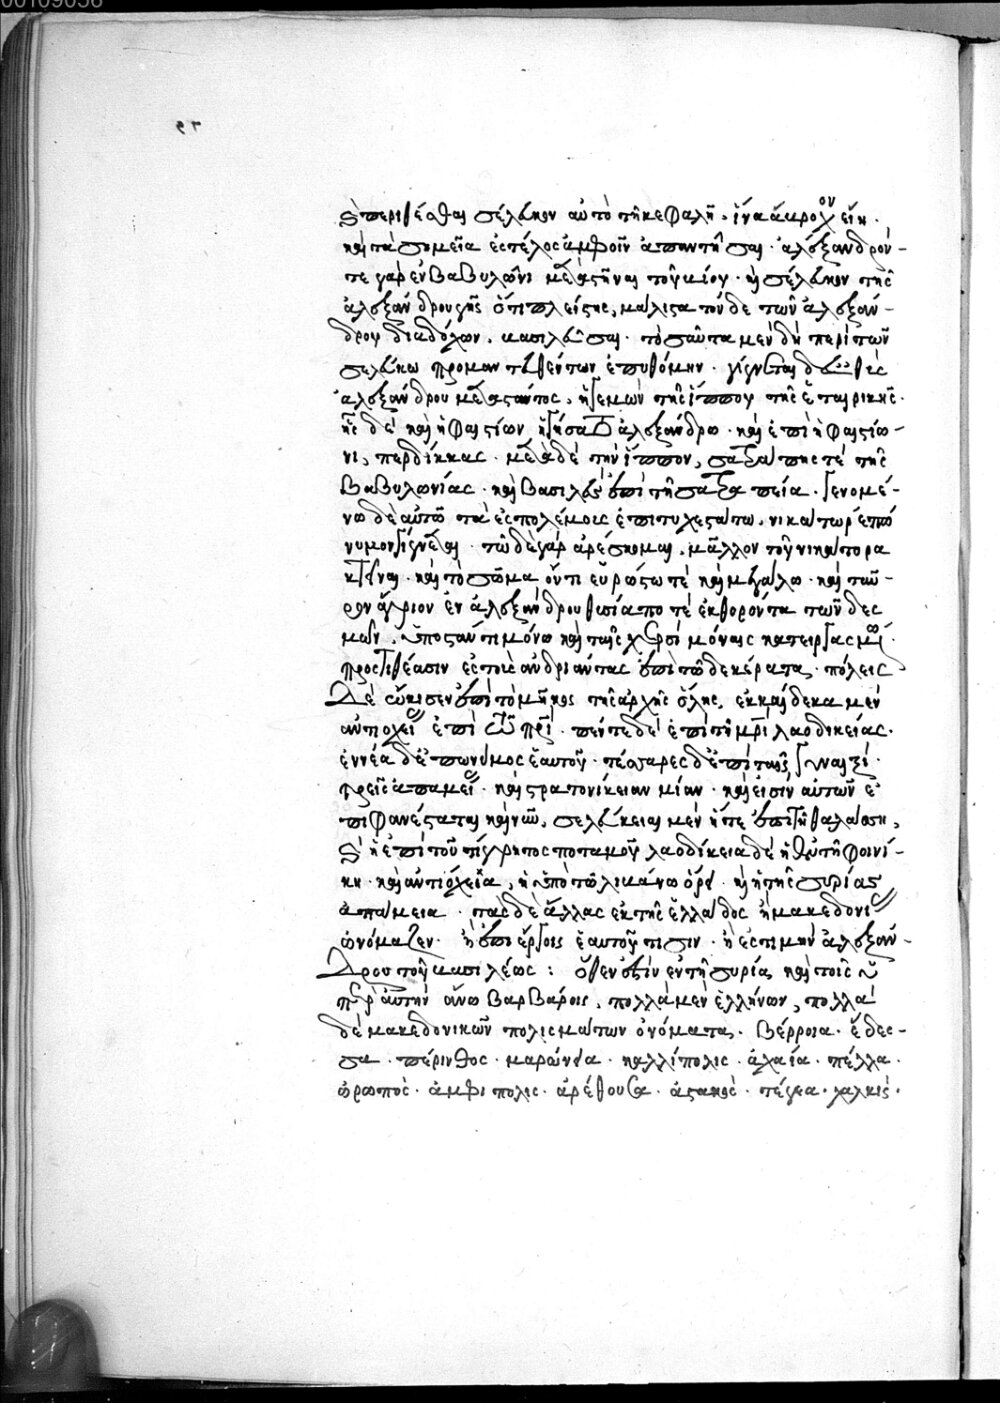 00109056
καὶ περιθέσθαι σέλευκον αὐτὸ τῆ κεφαλῆ. ἵνα ἄβροχον εἴη.
καὶ τὰ σημεῖα ἐς τέλος ἀμφοῖν ἀπαντῆσαι. ἀλέξανδρόν-
τε γὰρ ἐν βαβυλῶνι μεταστῆναι τοῦ βίου. καὶ σέλευκον τῆς
ἀλεξάνδρου γῆς ὅτι πλείστης, μάλιστα τόνδε τῶν ἀλεξάν-
δρου διαδόχων, βασιλεῦσαι. τοσαῦτα μὲν δὴ περὶ τῶν
σελεύκω προμαντευθέντων ἐπυθόμην. γίγνεται δ' εὐθὺς
ἀλεξάνδρου μεταστάντος, ἡγεμὼν τῆς ἵππου τῆς ἑταιρικῆς.
ἧς δὴ καὶ ἡφαιστίων ἡγήσατο ἀλεξάνδρω. καὶ ἐπὶ ἡφαιστίω-
νι, περδίκκας. μετὰ δὲ τὴν ἵππον, σατράπης τὲ τῆς
βαβυλωνίας. καὶ βασιλεὺς ἐπὶ τῆ σατραπεία. γενομέ-
νω δὲ αὐτῶ τὰ ἐς πολέμους ἐπιτυχεστάτω, νικάτωρ ἐπώ
νυμον γίγνεται. τῶδε γὰρ ἀρέσκομαι, μᾶλλον τοῦ νικάτορα
κτεῖναι. καὶ τὸ σῶμα ὄντι εὐρώστω τὲ καὶ μεγάλω. καὶ ταῦ-
ρον ἄγριον ἐν ἀλεξάνδρου θυσία ποτὲ ἐκθορόντα τῶν δεσ
μῶν, ὑποστάντι μόνω καὶ ταῖς χερσὶ μόναις κατειργασμένω.
προστιθέασιν ἐς τοὺς ἀνδριάντας ἐπὶ τῶδε κέρατα. πόλεις
δὲ ᾤκισεν ἐπὶ τὸ μῆκος τῆς ἀρχῆς ὅλης, ἑκκαίδεκα μὲν
ἀντιοχείας ἐπὶ τῶ πατρί. πέντε δὲ ἐπὶ τῆ μητρὶ λαοδικείας.
ἐννέα δ' ἐπωνύμους ἑαυτοῦ. τέσσαρες δ' ἐπὶ ταῖς γυναιξί.
τρεῖς ἀπαμείας. καὶ στρατονίκειαν μίαν. καὶ εἰσὶν αὐτῶν ἐ
πιφανέσταται καὶ νῦν, σελεύκειαι μὲν ἥ τε ἐπὶ τῆ θαλάσση,
καὶ ἡ ἐπὶ τοῦ τίγρητος ποταμοῦ, λαοδίκεια δὲ ἡ ἐν τῆ φοινί-
κη. καὶ ἀντιόχεια, ἡ ὑπὸ τῶ λιβάνω ὄρει. καὶ ἡ τῆς συρίας
ἀπάμεια. τὰς δὲ ἄλλας ἐκ τῆς ἑλλάδος ἢ μακεδονίας
ὠνόμαζεν. ἢ ἐπὶ ἔργοις ἑαυτοῦ τισιν. ἢ ἐς τιμὴν ἀλεξάν-
δρου τοῦ βασιλέως: ὅθεν ἐστὶν ἐν τῆ συρία, καὶ τοῖς ὑ
πὲρ αὐτὴν ἄνω βαρβάροις, πολλὰ μὲν ἑλλήνων, πολλὰ
δὲ μακεδονικῶν πολισμάτων ὀνόματα. βέρροια. ἔδεσ-
σα. πέρινθος. μαρώνεα. καλλίπολις. ἀχαία. πέλλα.
ὠρωπός. ἀμφίπολις. ἀρέθουσα. ἀστακός. τέγεα. χαλκίς.